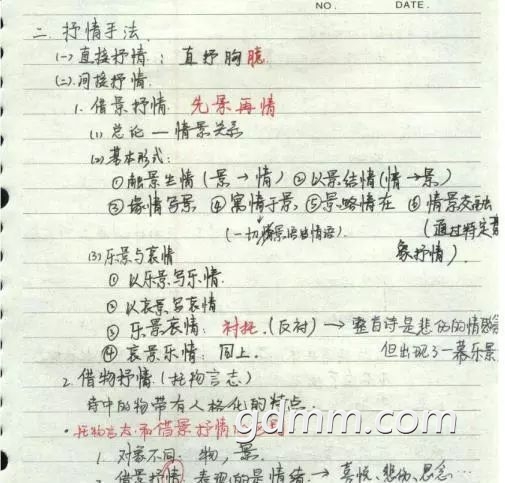 NO. DATE.
二. 抒情手法
(一) 直接抒情: 直抒胸臆
(二) 间接抒情.
1. 借景抒情. 先景再情
(1) 总论 — 情景关系
(2) 基本形式:
①融景生情(景→情) ②以景结情(情→景)
③缘情写景 ④寓情于景 ⑤景略情在 ⑥情景交融
(一切景语皆情语). (通过特定意
象抒情).
(3) 乐景与哀情
① 以乐景写乐情.
② 以哀景写哀情
③ 乐景哀情: 衬托.(反衬) → 整首诗是悲伤的情感
④ 哀景乐情: 同上. 但出现了一幕乐景
2. 借物抒情(托物言志)
诗中的物带有人格化的特点.
·托物言志和借景抒情
gdmm.com
1. 对象不同: 物, 景.
借景抒情 表现的是情绪. → 喜悦、悲伤、思念…